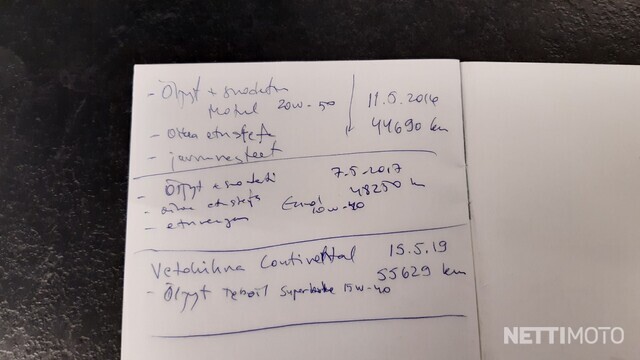 - Öljyt + suodatin
Motul 20w-50
11.5.2016
44690 km
- Oikea etustefa
- jarrunesteet
- Öljyt + suodatin
7.5.2017
48250 km
- oikea etustefa
10w-40
- eturengas
Vetohihna Continental 15.5.19
55629 km
- Öljyt Teboil Superbike 15w-40
NETTIMOTO